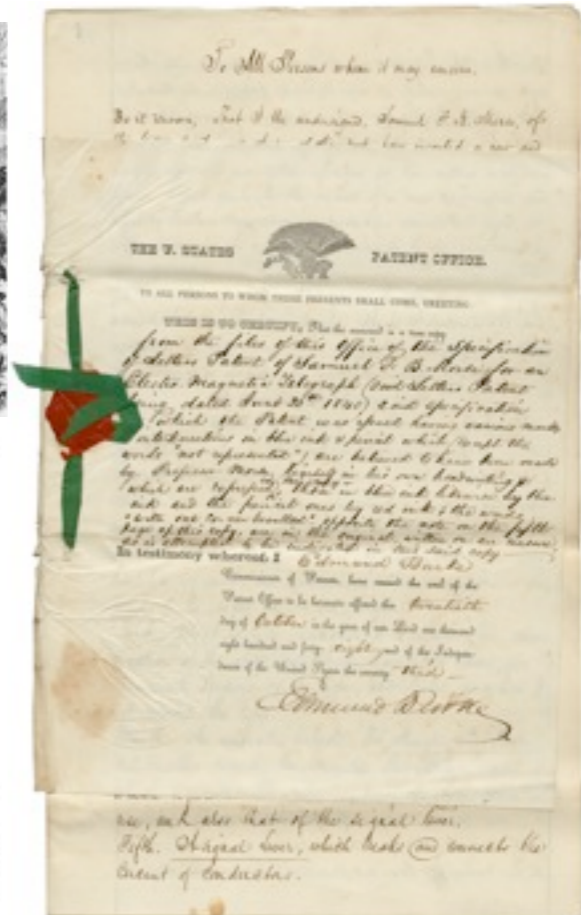 To All Persons whom it may concern.
Be it known, That I the undersigned, Samuel F. B. Morse, of
have invented a new and
THE U. STATES PATENT OFFICE.
TO ALL PERSONS TO WHOM THESE PRESENTS SHALL COME, GREETING
THIS IS TO CERTIFY, That the annexed is a true copy
from the files of this Office of the Specification
of Letters Patent of Samuel F. B. Morse for an
Electro Magnetic Telegraph Letters Patent
dated June 20th 1840) said specification
which the Patent was issued having various marks
interlineations in the ink & pencil which (except the
words "not represented") are believed to have been made
by Professor Morse himself in his own handwriting &
which are in this ink by the
ink and the pencil ones by red ink & the words
opposite the note on the fifth
page of this copy, are in the original written on an
as is attempted to be indicated in this said copy
In testimony whereof, I Edmund Burke
Commissioner of Patents, have caused the seal of the
Patent Office to be hereunto affixed this twentieth
day of October in the year of our Lord one thousand
eight hundred and forty eight and of the Indepen-
dence of the United States the seventy third
Edmund Burke
use, and also that of the signal lever.
Fifth. A signal lever, which breaks and connects the
circuit of conductors.